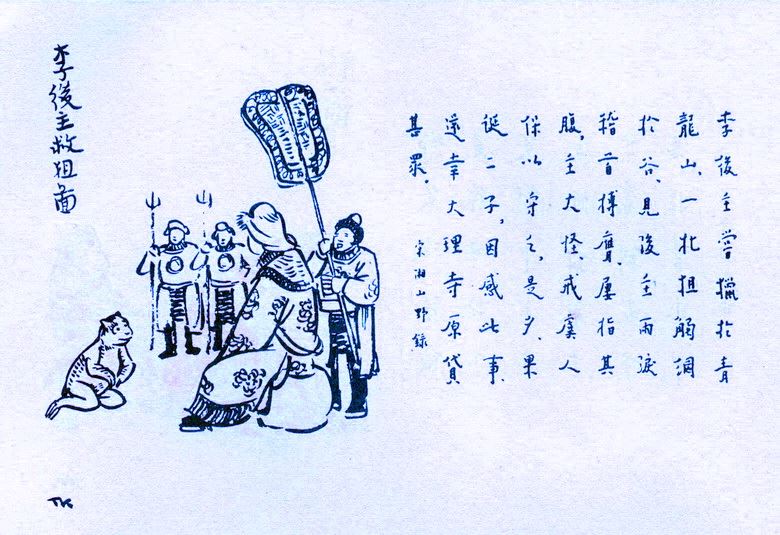 李後主救狙圖
李後主嘗獵於青
龍山,一牝狙觸網
於谷,見後主兩淚
稽首搏膺,屢指其
腹,主大怪,戒虞人
保以守之,是夕,果
誕二子,因感此事,
還幸大理寺原貸
甚眾。
宋湘山野錄
TK